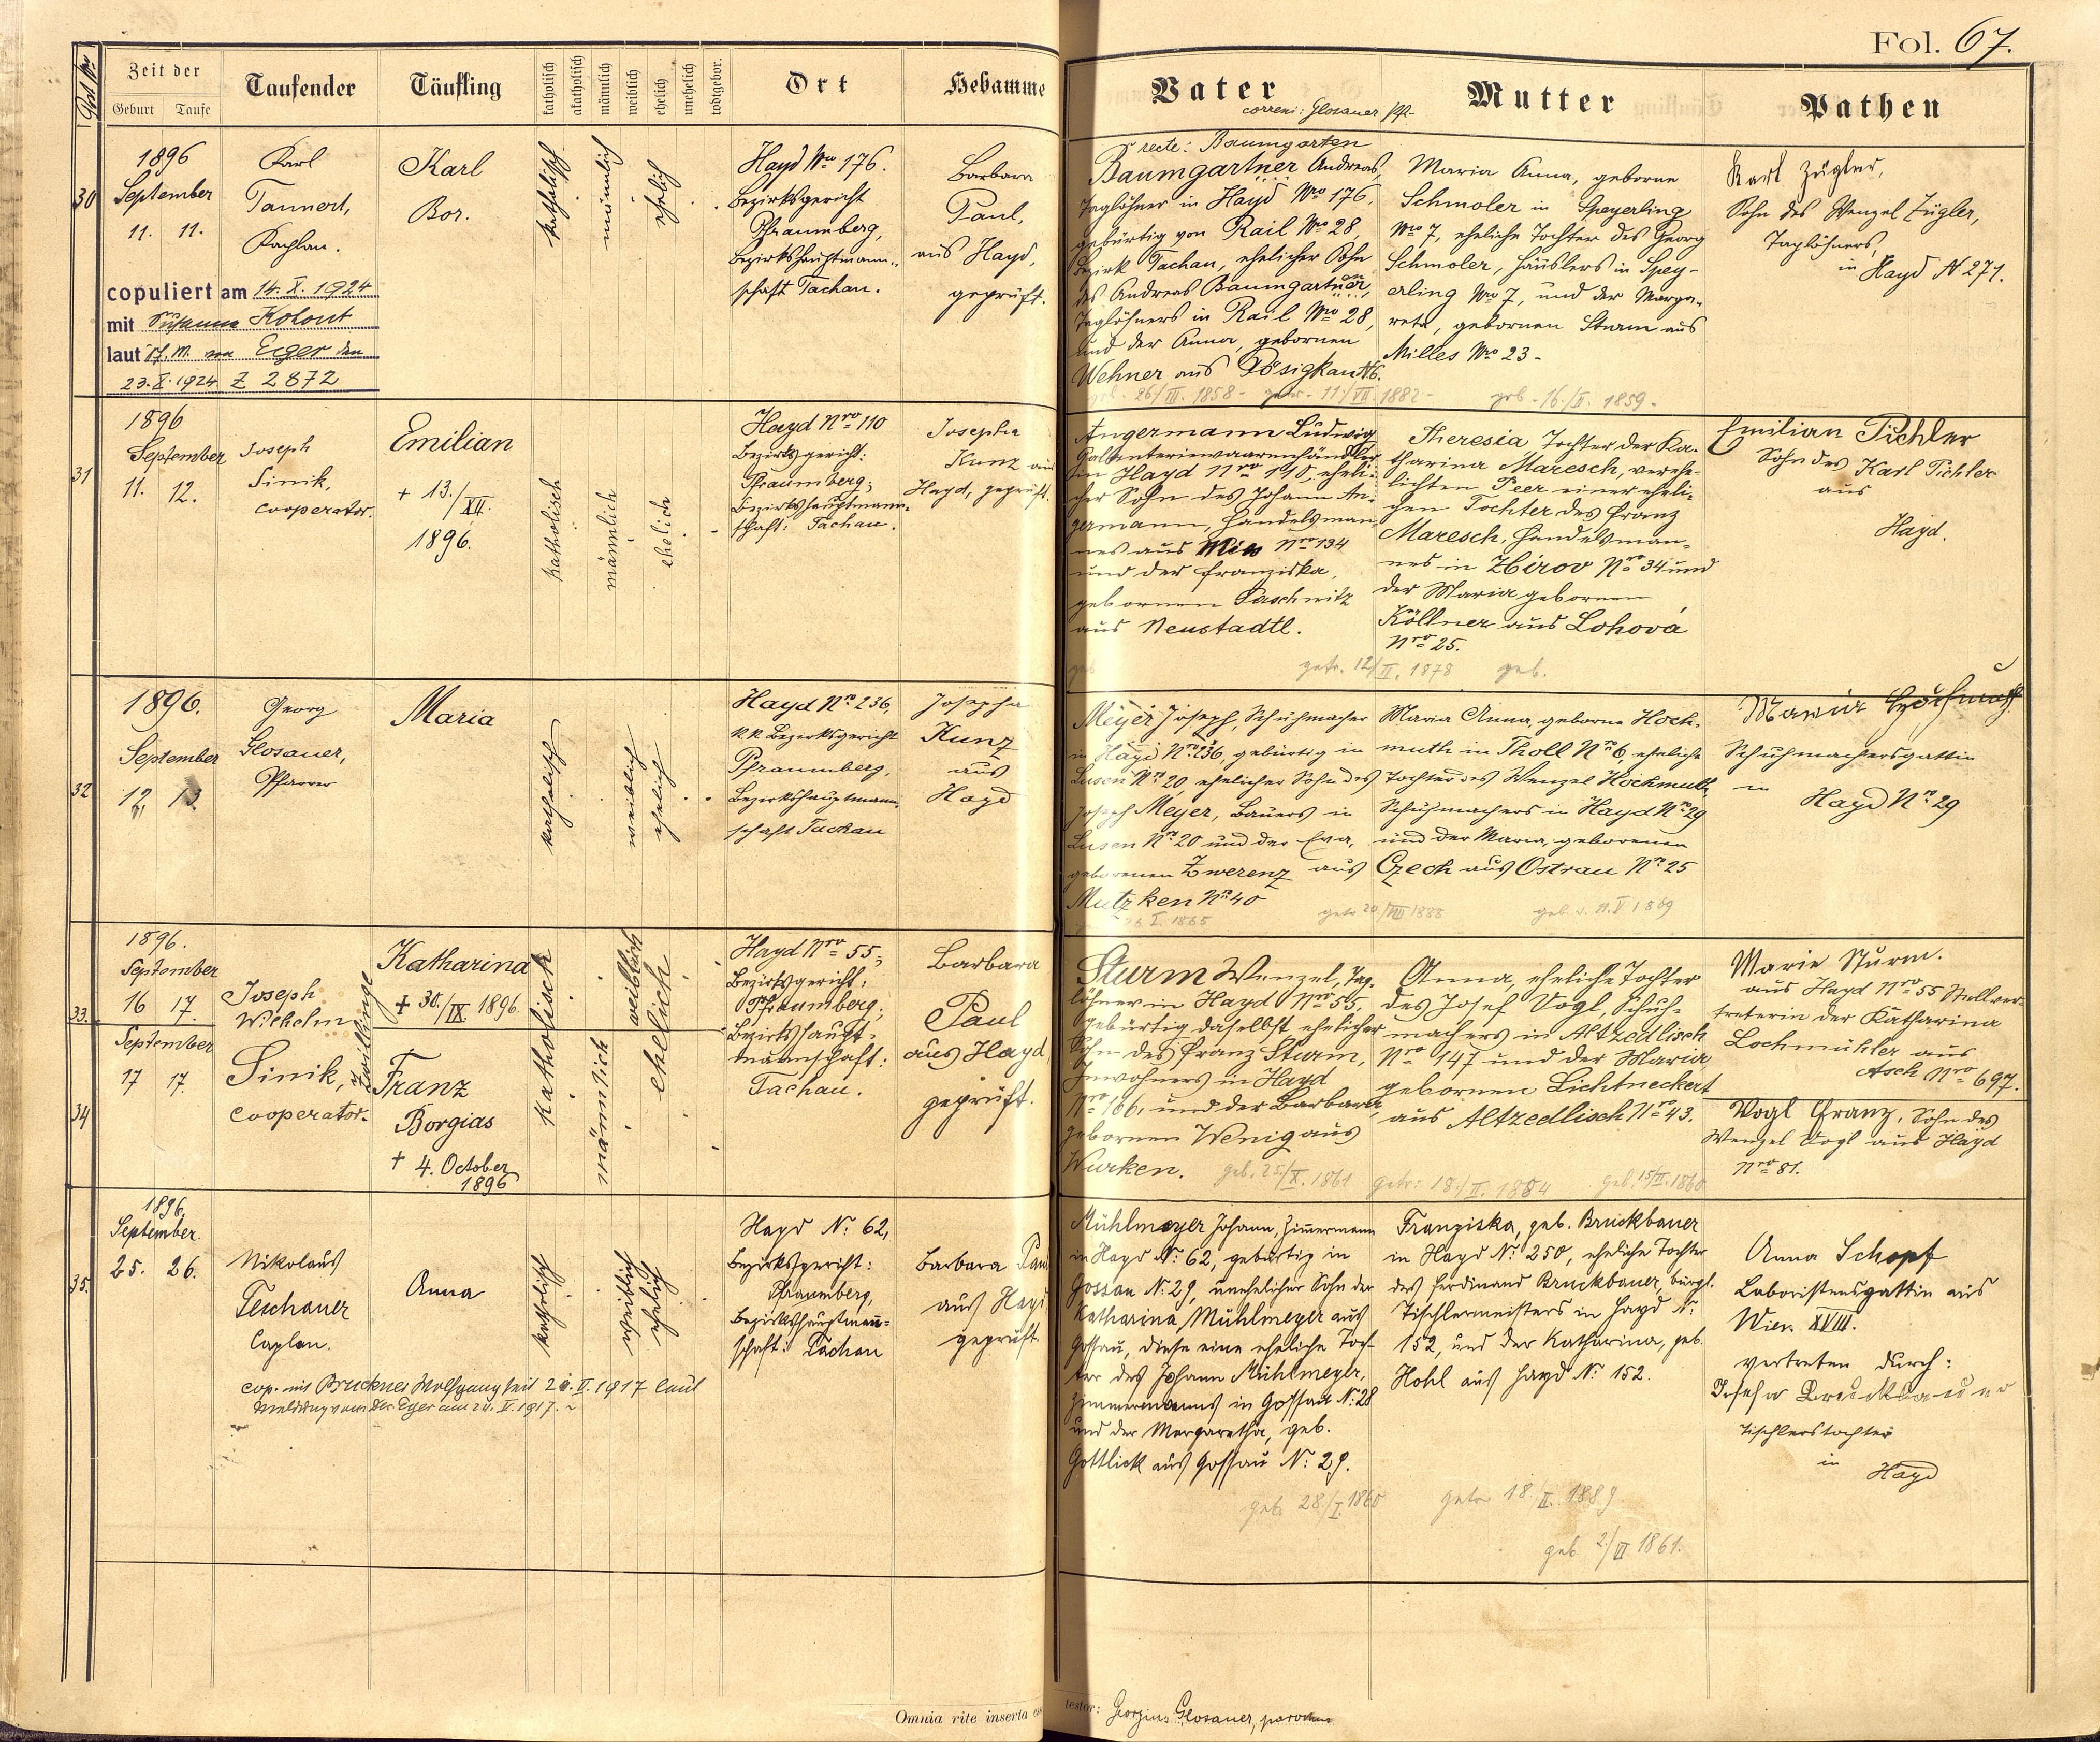 Fol. 67.
Post Nro
Zeit der
Geburt Taufe
Taufender
Täufling
katholisch
akatholisch
männlich
weiblich
ehelich
unehelich
todtgebor.
Ort
Hebamme
Vater
Mutter
Pathen
correxi: Glosauer
30
1896
September
11. 11.
Karl
Tannert,
Kaplan.
copuliert am 14. X. 1924
mit Susanna Kohout
laut M. von Eger den
23. X. 1924 Z 2872
Karl
Bor.
katholisch
männlich
ehelich
Hayd Nro 176.
Bezirksgericht
Pfraumberg,
Bezirkshauptmann-
schaft Tachau.
Barbara
Paul,
aus Hayd,
geprüft.
recte: Baumgarten
Baumgartner Andreas,
Taglöhner in Hayd Nro 176,
gebürtig von Rail Nro 28,
Bezirk Tachau, ehelicher Sohn
des Andreas Baumgartner,
Taglöhners in Rail Nro 28,
und der Anna, gebornen
Wehner aus Pösigkau N 6.
geb. 26/III. 1858 - getr. 11./VII. 1882 -
Maria Anna, geborne
Schmoler in Speyerling
Nro 7, eheliche Tochter des Georg
Schmoler, Häuslers in Spey-
erling Nro 7, und der Marga-
reta, gebornen Sturm aus
Milles Nro 23 -
geb - 16./II. 1859 -
Karl Zügler,
Sohn des Wenzel Zügler,
Taglöhners,
in Hayd N 271.
31
1896
September
11. 12.
Joseph
Sinik,
cooperator.
Emilian
+ 13./XII.
1896.
katholisch
männlich
ehelich
Hayd Nro 110
Bezirksgericht:
Pfraumberg;
Bezirkshauptmann-
schaft: Tachau.
Josepha
Kunz aus
Hayd, geprüft.
Angermann Ludwig
Galanteriewaarenhändler
in Hayd Nro 110, eheli-
cher Sohn des Johann An-
germann, Handelsman-
nes aus Mies Nro 134
und der Franziska,
gebornen Paschnitz
aus Neustadtl.
geb
getr. 12/II. 1878
Theresia Tochter der Ka-
tharina Maresch, verehe-
lichten Peer einer eheli-
gen Tochter des Franz
Maresch, Handelsman-
nes in Zhirov Nro 34 und
der Maria gebornen
Köllner aus Lohová
Nro 25.
geb.
Emilian Pichler
Sohn des Karl Pichler
aus
Hayd.
32
1896.
September
12, 13.
Georg
Glosauer,
Pfarrer
Maria
katholisch
weiblich
ehelich
Hayd Nro 236,
k.k. Bezirksgericht
Pfraumberg,
Bezirkshauptmann-
schaft Tachau
Josepha
Kunz
aus
Hayd
Meyer Joseph, Schuhmacher
in Hayd Nro 236, gebürtig in
Lusen Nro 20, ehelicher Sohn des
Joseph Meyer, Bauers in
Lusen Nro 20 und der Eva,
geborenen Zwerenz aus
Mutzken Nro 40
I. 1865
getr 20./VIII 1888
Maria Anna, geborne Hoch-
muth in Tholl Nro 6, eheliche
Tochter des Wenzel Hochmuth,
Schuhmachers in Hayd Nro 29
und der Maria, geborenen
Czech aus Ostrau Nro 25
geb. 11. V 1869
Maria Hochmuth
Schuhmachersgattin
in Hayd Nro 29
33.
1896.
September
16 17.
Joseph
Wilhelm
Sinik,
cooperator.
Zwillinge
Katharina
+ 30./IX 1896.
katholisch
weiblich
ehelich
Hayd Nro 55;
Bezirksgericht:
Pfraumberg;
Bezirkshaupt-
mannschaft:
Tachau.
Barbara
Paul
aus Hayd,
geprüft.
34
September
17 17.
Franz
Borgias
+ 4. October
1896
männlich
Sturm Wenzel, Tag-
löhner in Hayd Nro 55,
gebürtig daselbst ehelicher
Sohn des Franz Sturm,
Inwohners in Hayd
Nro 166, und der Barbara
gebornen Wenig aus
Wurken.
geb. 25/X. 1861 getr: 18./II. 1884
Anna, eheliche Tochter
des Josef Vogl, Schuh-
machers in Altzedlisch
Nro 147 und der Maria
gebornen Lichtneckert
aus Altzedlisch Nro 43.
geb. 15/II. 1860
Marie Sturm.
aus Hayd Nro 55 Stellver-
treterin der Katharina
Lochmühler aus
Asch Nro 697.
Vogl Franz, Sohn des
Wenzel Vogl aus Hayd
Nro 81.
35.
1896.
September.
25. 26.
Nikolaus
Teschauer
Caplan.
Anna
cop. mit Bruckner Wolfgang seit 20. V. 1917 laut
Meldung vom Eger am 20. V. 1917.
katholisch
weiblich
ehelich
Hayd No 62,
Bezirksgericht:
Pfraumberg,
Bezirkshauptman-
schaft: Tachau
Barbara Paul
aus Hayd
geprüft
Mühlmeyer Johann, Zimmermann
in Hayd No 62, gebürtig in
Gossau No 29, unehelicher Sohn der
Katharina Mühlmeyer aus
Gossau, diese eine eheliche Toch-
ter des Johann Mühlmeyer,
Zimmermanns in Gossau No 28
und der Margaretha, geb.
Gottlick aus Gossau No 29.
geb. 28/I. 1860
getr 18./II. 1889
Franziska, geb. Bruckbauer
in Hayd No 250, eheliche Tochter
des Ferdinand Bruckbauer, bürgl.
Tischlermeisters in Hayd No
152, und der Katharina, geb.
Hohl aus Hayd No 152.
geb 2./VI 1861.
Anna Schopf
Laboristensgattin aus
Wien XVIII.
vertreten durch:
Josefa Bruckbauer
Tischlerstochter
in Hayd
Omnia rite inserta esse
testor: Georgius Glosauer, parochus